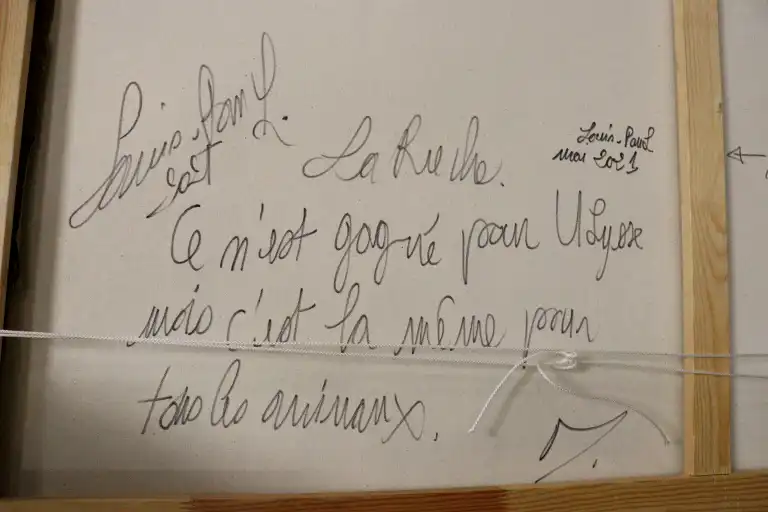 Louis-Paul.
août
La Ruche.
Louis-Paul
mai 2021
Ce n'est gagné pour Ulysse
mais c'est la même pour
tous les animaux.